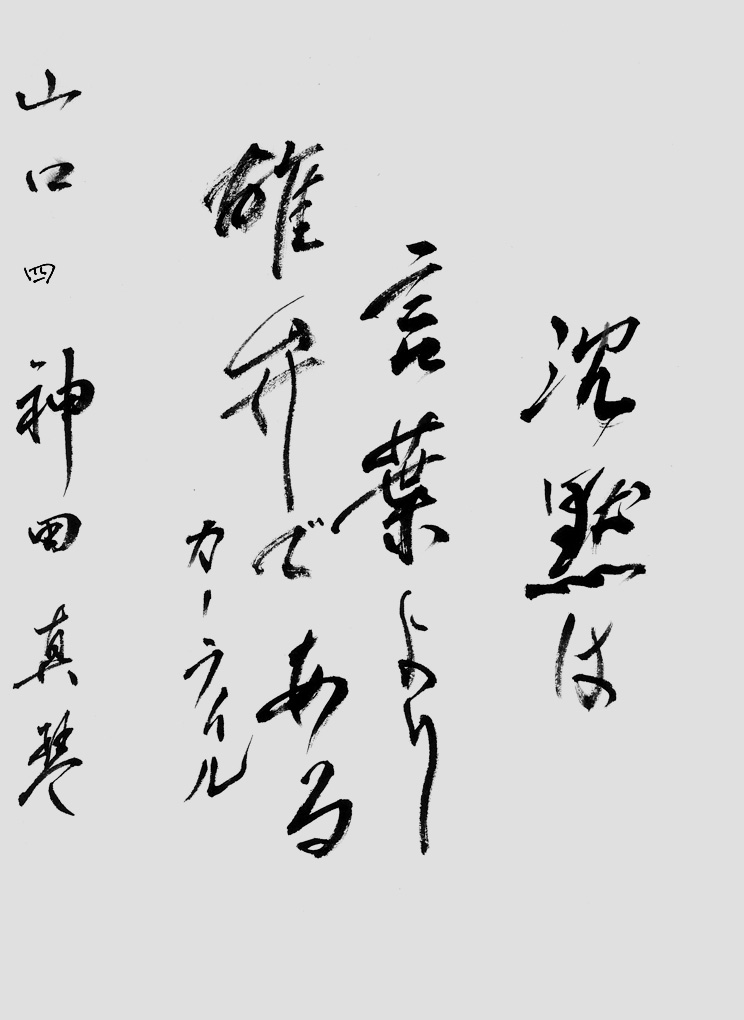 沈黙は
言葉より
雄弁である
カーライル
山口四神田真琴